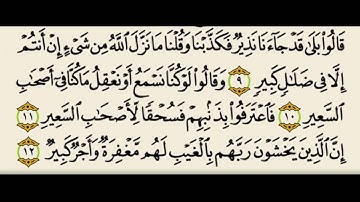 قَالُوا۟ بَلَىٰ قَدْ جَآءَنَا نَذِيرٌ فَكَذَّبْنَا وَقُلْنَا مَا نَزَّلَ ٱللَّهُ مِن شَىْءٍ إِنْ أَنتُمْ
إِلَّا فِى ضَلَـٰلٍ كَبِيرٍ ٩ وَقَالُوا۟ لَوْ كُنَّا نَسْمَعُ أَوْ نَعْقِلُ مَا كُنَّا فِىٓ أَصْحَـٰبِ
ٱلسَّعِيرِ ١٠ فَٱعْتَرَفُوا۟ بِذَنۢبِهِمْ فَسُحْقًا لِّأَصْحَـٰبِ ٱلسَّعِيرِ ١١
إِنَّ ٱلَّذِينَ يَخْشَوْنَ رَبَّهُم بِٱلْغَيْبِ لَهُم مَّغْفِرَةٌ وَأَجْرٌ كَبِيرٌ ١٢